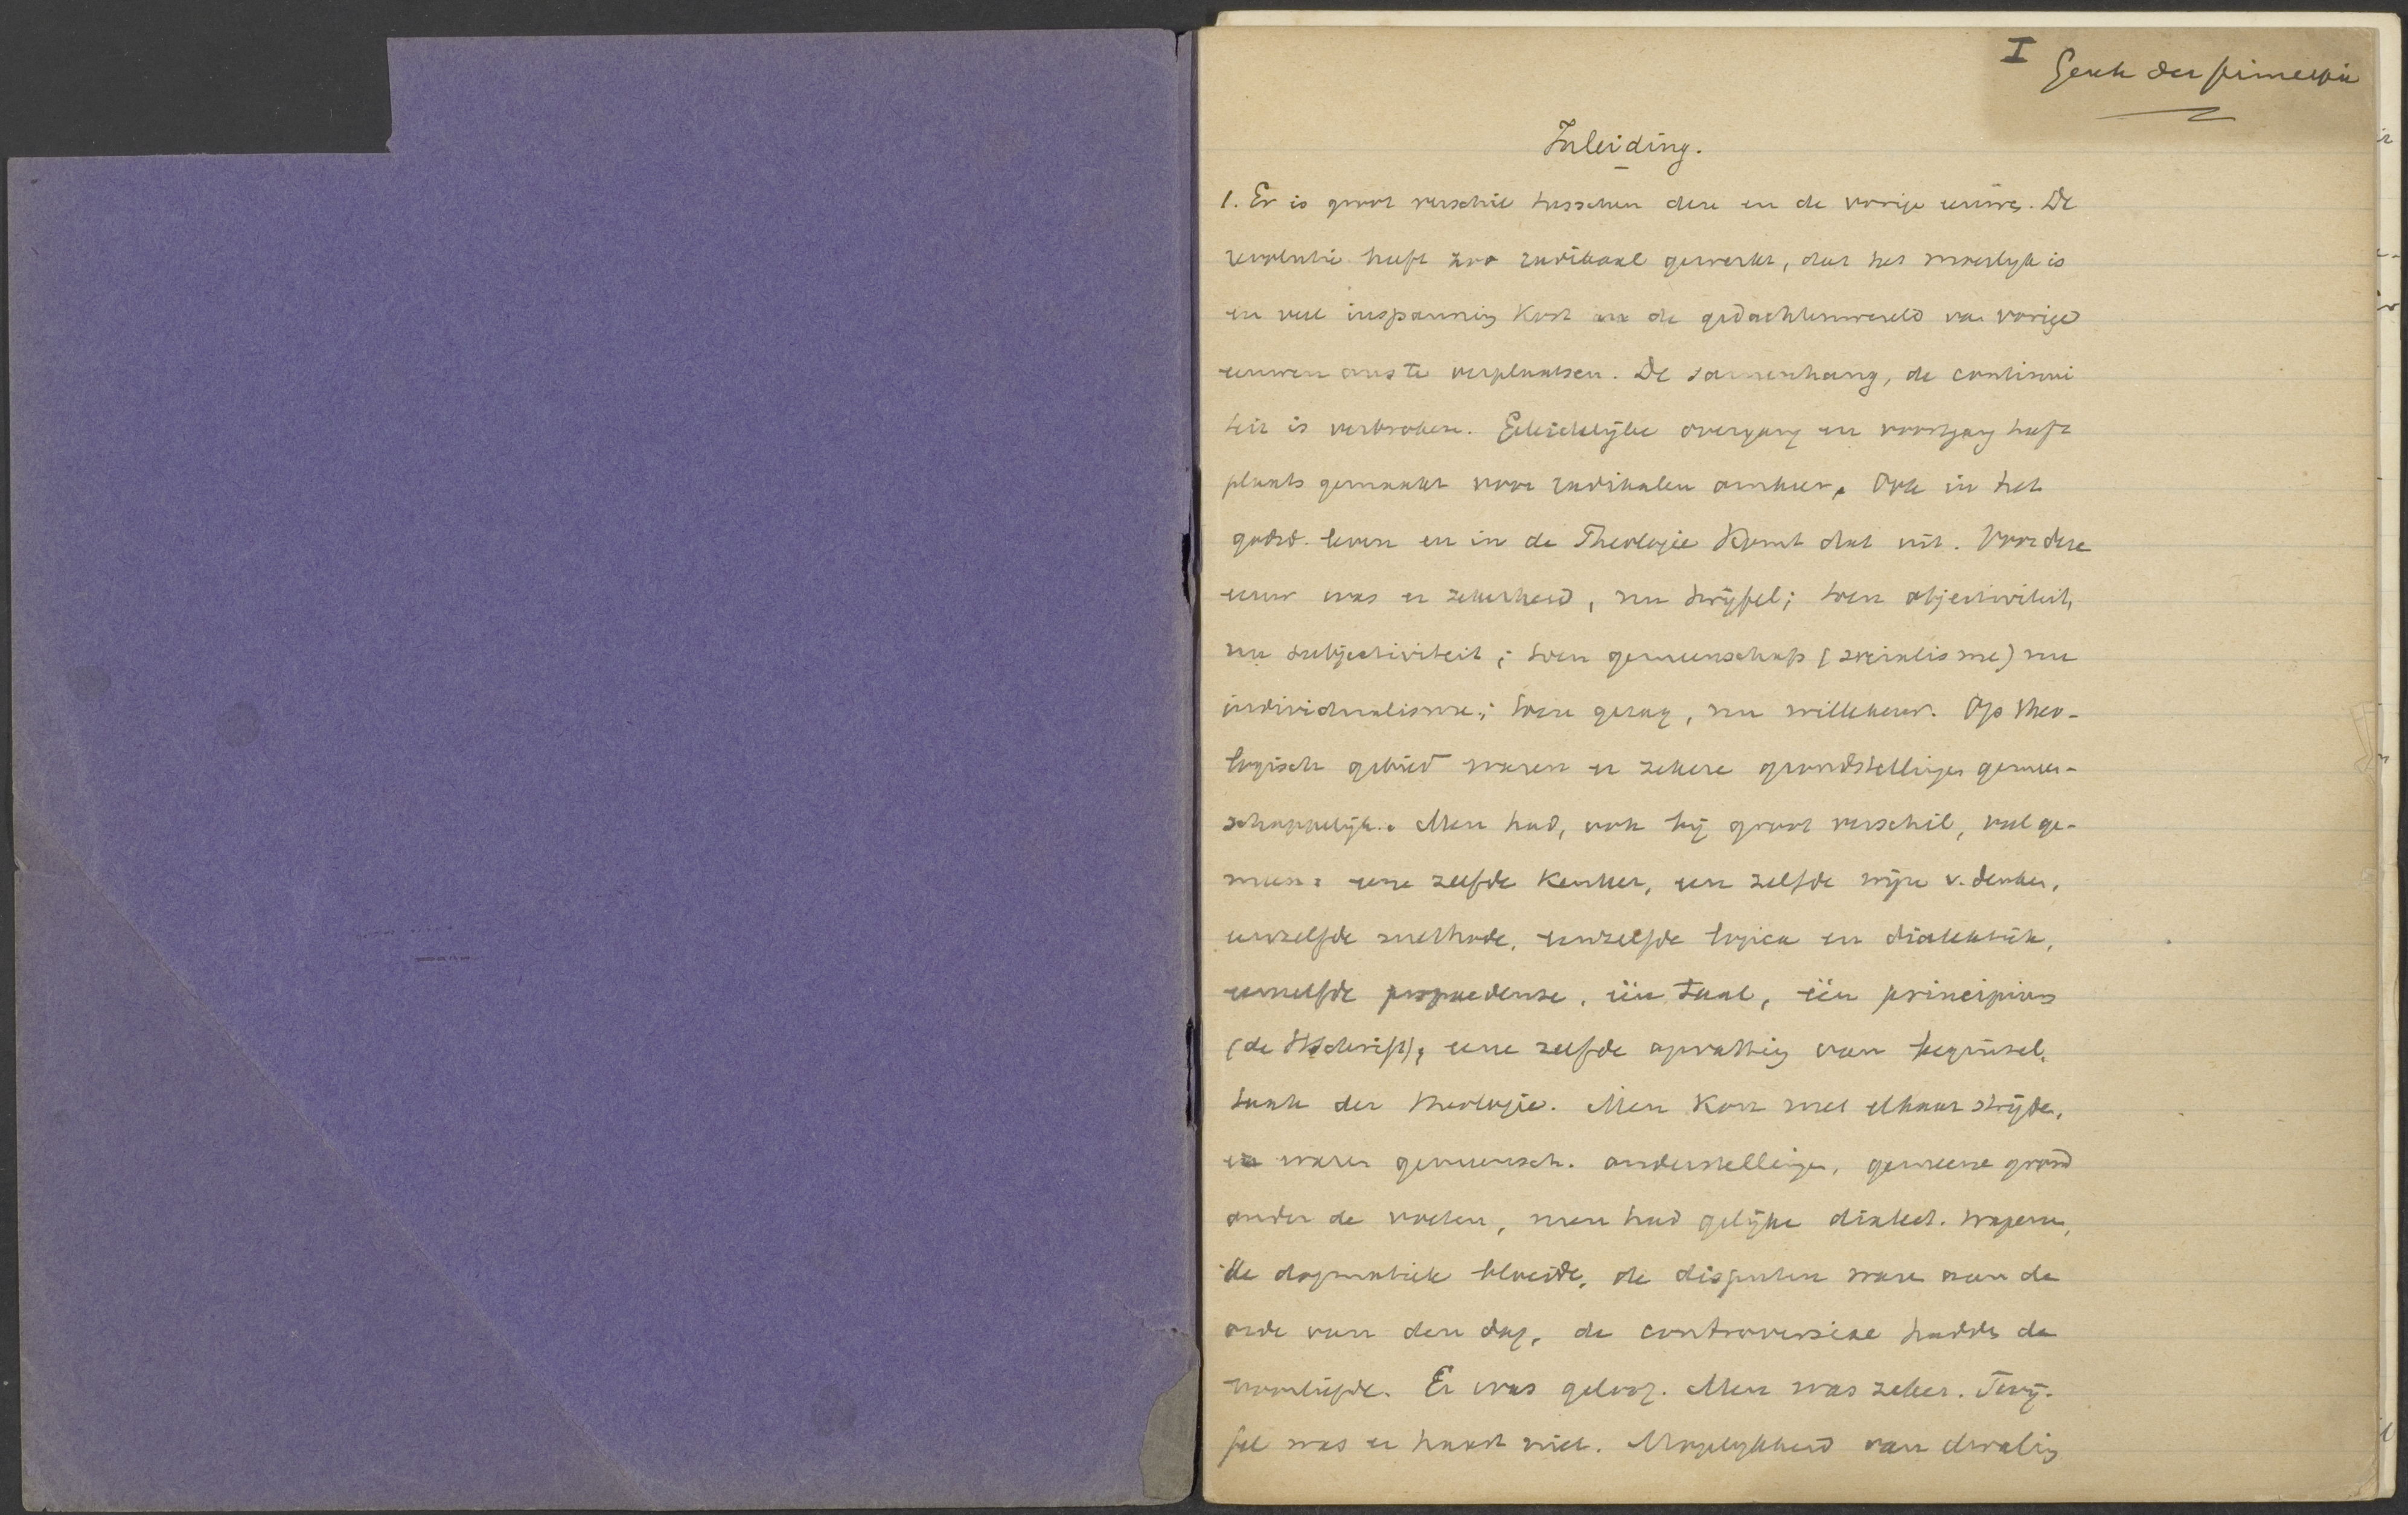 I
Gesch der principia
Inleiding.
1. Er is groot verschil tusschen deze en de vorige eeuw. De
revolutie heeft zoo radikaal gewerkt, dat het moeilyk is
en veel inspanning kost in de gedachtenwereld van vorige
eeuwen ons te verplaatsen. De samenhang, de continui
teit is verbroken. Geleidelijke overgang en voortgang heeft
plaats gemaakt voor radikalen omkeer. Ook in het
godsd. leven en in de Theologie Komt dat uit. Voor deze
eeuw was er zekerheid, nu twijfel; toen objectiviteit,
nu subjectiviteit; toen gemeenschap (socialisme) nu
individualisme; toen gezag, nu willekeur. Op theo-
logisch gebied waren er zekere grondstellingen gemeen-
schappelijk. Men had, ook bij groot verschil, veel ge-
meen: eene zelfde Kenleer, een zelfde wijze v. denken,
eenzelfde methode, eenzelfde logica en dialektiek,
eenzelfde propaedeuse, één taal, één principium
(de HSchrift), eene zelfde opvatting van beginsel,
taak der theologie. Men Kon met elkaar strijden,
er waren gemeensch. onderstellingen, gemeene grond
onder de voeten, men had gelijke dialect. wapenen,
de dogmatiek bloeide, de disputen waren aan de
orde van den dag, de controversiae hadden de
voorliefde. Er was geloof. Men was zeker. Twij-
fel was er haast niet. Mogelykheid van dwaling